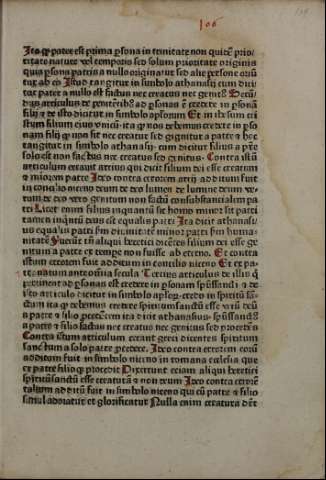 106
Ita qp pater est prima psona in trinitate non quidē prio
ritate nature vel temporis sed solum prioritate originis
quia psona patris a nullo originatur sed alie psone oriū
tur ab eo Istud tangitur in simbolo athanasij cum dici
tur pater a nullo est factus nec creatus nec genitꝰ Secū
dus articulus de ptinētibꝰ ad psonas ē credere in psonā
filij & de isto dicitur in simbolo apostolorum Et in ihesum cri
stum filium eius vnicū ita qp nos credemus credere in pso
nam filij qp non sit nec creatus sed gignitur a patre & hoc
tangitur in simbolo athanasij cum dicitur filius a pre
solo est non factus nec creatus sed genitus Contra istū
articulum errauit arrius qui dicit filium dei esse creatum
& minorem patre Ideo contra errorem arrij additum fuit
in concilio niceno deum de deo lumen de lumine deum ve
rum de deo vero genitum non factū consubstancialem pa
tri Licet enim filius inquantū est homo minor sit patri
tamen inquantū deus est equalis patri Ita dicit athanasiꝰ
equalis patri sm diuinitatē minor patri sm huma
nitatē Fuerūt tn aliqui heretici dicētes filium dei esse ge
nitum a patre ex tempore non fuisse ab eterno Et contra
istum errorem fuit additum in concilio niceno Et ex pa
tre natum ante omnia secula Tercius articulus de illis q
ptinent ad psonas est credere in psonam spūssancti & de
isto articulo dicitur in simbolo aplorum credo in spiritū sā
ctum ita qp debemus credere spiritumsanctū esse verū deū
a patre & filio procedētem ita dicit athanasius spūssanctꝰ
a patre & filio factus nec creatus nec genitus sed procedēs
Contra istum articulum errant greci dicentes spiritum
sanctum a solo patre procedere Ideo contra errorem eorū
additum fuit in simbolo niceno in romana ecclesia que
ex patre filioqp procedit Dixerunt eciam aliqui heretici
spiritūsanctū esse creaturā & non deum Ideo contra errorē
talium additū fuit in simbolo niceno qui cū patre & filio
simul adoratur et glorificatur Nulla enim creatura debet